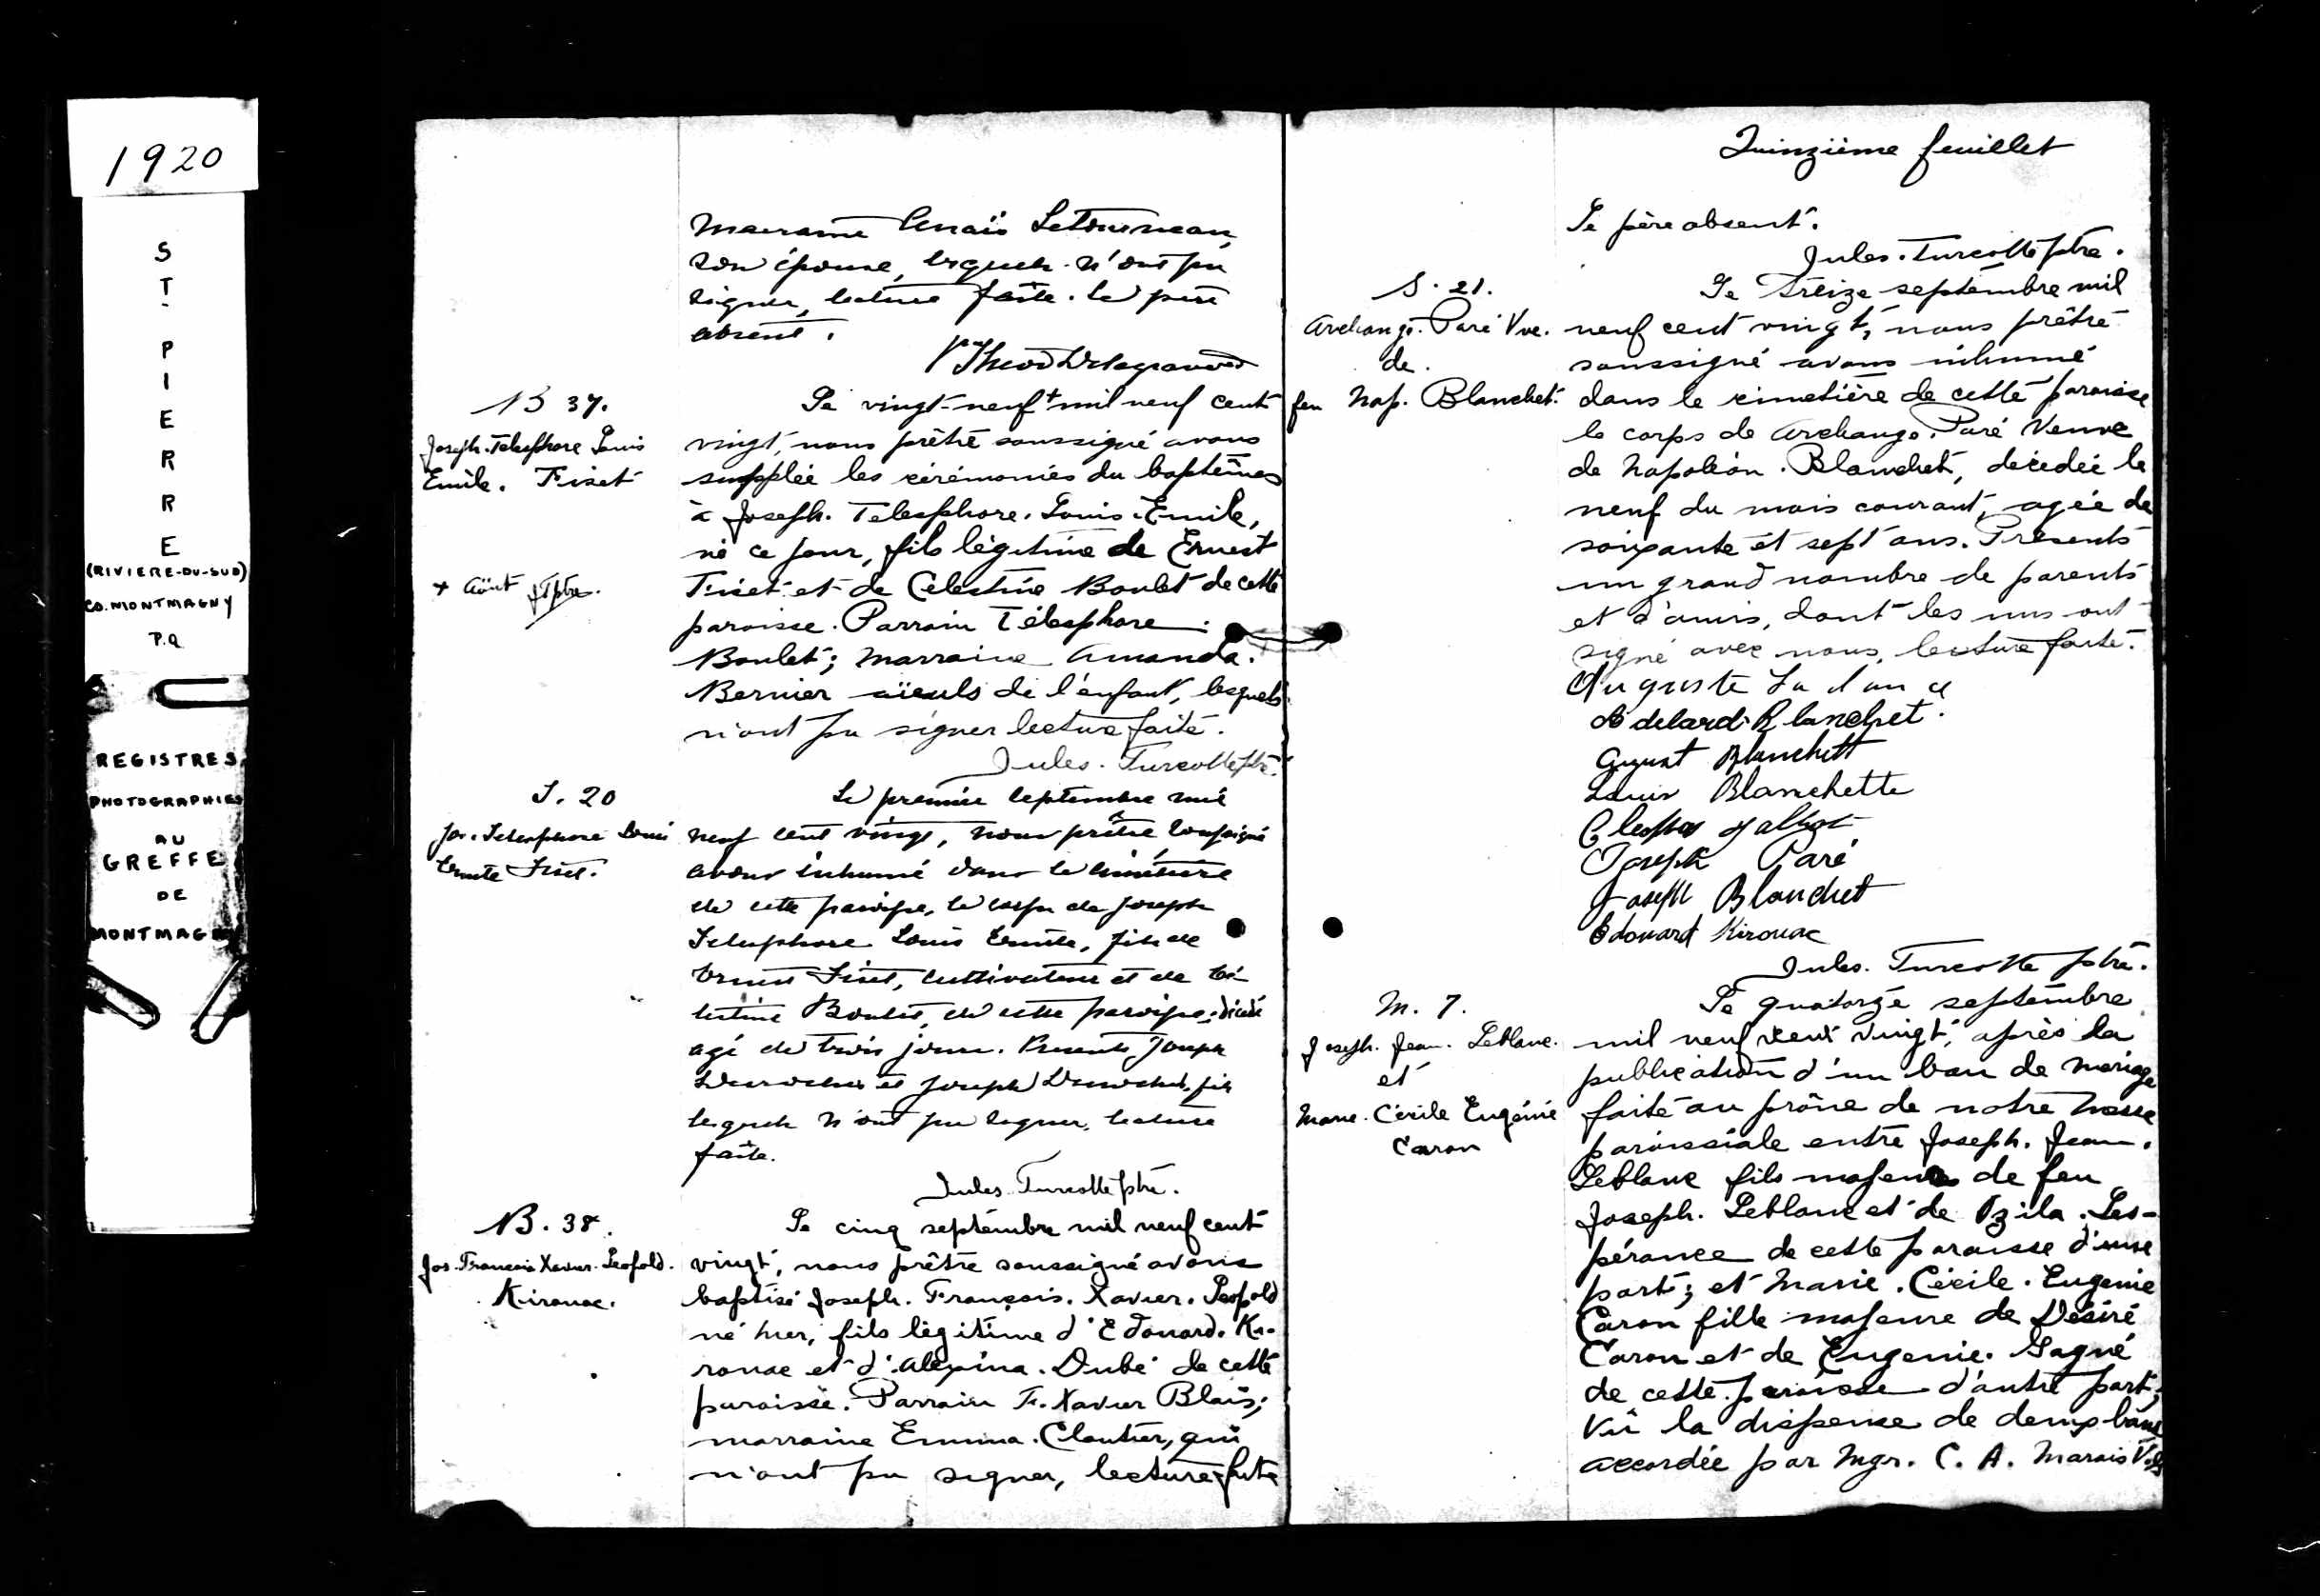 1920
ST-PIERRE
(RIVIERE-DU-SUD)
CO. MONTMAGNY
P.Q
REGISTRES
PHOTOGRAPHIES
AU
GREFFE
DE
MONTMAGNY
marraine Anaïs Letourneau
son épouse, lesquels n'ont pu
signer, lecture faite. Le père
absent.
B 37.
Joseph. Telesphore Louis
Emile. Fiset
+ Août JTptre.
Le vingt-neuf + mil neuf cent
vingt, nous prêtre soussigné avons
supplée les cérémonies du baptêmes
à Joseph. Telesphore. Louis. Emile,
né ce jour, fils légitime de Ernest
Fiset et de Célestine Boulet de cette
paroisse. Parrain Télesphore
Boulet; marraine Amanda.
Bernier aïeuls de l'enfant, lesquels
n'ont pu signer lecture faite.
Jules. Turcotte ptre.
S. 20
Jos. Telesphore Louis
Fiset.
Le premier septembre mil
neuf cent vingt, nous prêtre, soussigné
avons inhumé dans le cimetière
de cette paroisse, le corps de Joseph
Telesphore Louis Emile, fils de
Ernest Fiset, cultivateur et de Cé-
lestine Boulet, de cette paroisse, décédé
agé de trois jours. Présents Joseph
et Joseph fils
lesquels n'ont pu signer, lecture
faite.
Jules Turcotte ptre.
B. 38.
Jos. Francois Xavier. Leopold.
Kirouac.
Le cinq septembre mil neuf cent
vingt, nous prêtre soussigné avons
baptisé Joseph. François. Xavier. Leopold
né hier, fils légitime d'Edouard. Ki-
rouac et d'Alexina. Dubé de cette
paroisse. Parrain F. Xavier Blais;
marraine Emma. Cloutier, qui
n'ont pu signer, lecture faite
Quinzième feuillet
Le père absent.
Jules. Turcotte ptre.
S. 21.
Archange. Paré Vve.
de.
feu Nap. Blanchet.
Le treize septembre mil
neuf cent vingt, nous prêtre
soussigné avons inhumé
dans le cimetière de cette paroisse
le corps de Archange. Paré Veuve
de Napoléon. Blanchet, décédée le
neuf du mois courant, agée de
soixante et sept ans. Présents
un grand nombre de parents
et d'amis, dont les uns ont
signé avec nous, lecture faite.
Auguste
Blanchet.
August Blanchett
Louis Blanchette
Cleophas Talbot
Joseph Paré
Joseph Blanchet
Edouard Kirouac
Jules. Turcotte ptre.
M. 7.
Joseph. Jean. Leblanc.
et
Marie. Cécile Eugénie
Caron
Le quatorze septembre
mil neuf cent vingt, après la
publication d'un ban de mariage
faite au prône de notre messe
paroissiale entre Joseph. Jean.
Leblanc fils majeur de feu
Joseph. Leblanc et de Ozila. Les-
pérance de cette paroisse d'une
part; et Marie. Cécile. Eugenie
Caron fille majeure de Désiré
Caron et de Eugenie. Gagné
de cette paroisse d'autre part;
Vu la dispense de deux bans
accordée par Mgr. C. A. Marois V.G.